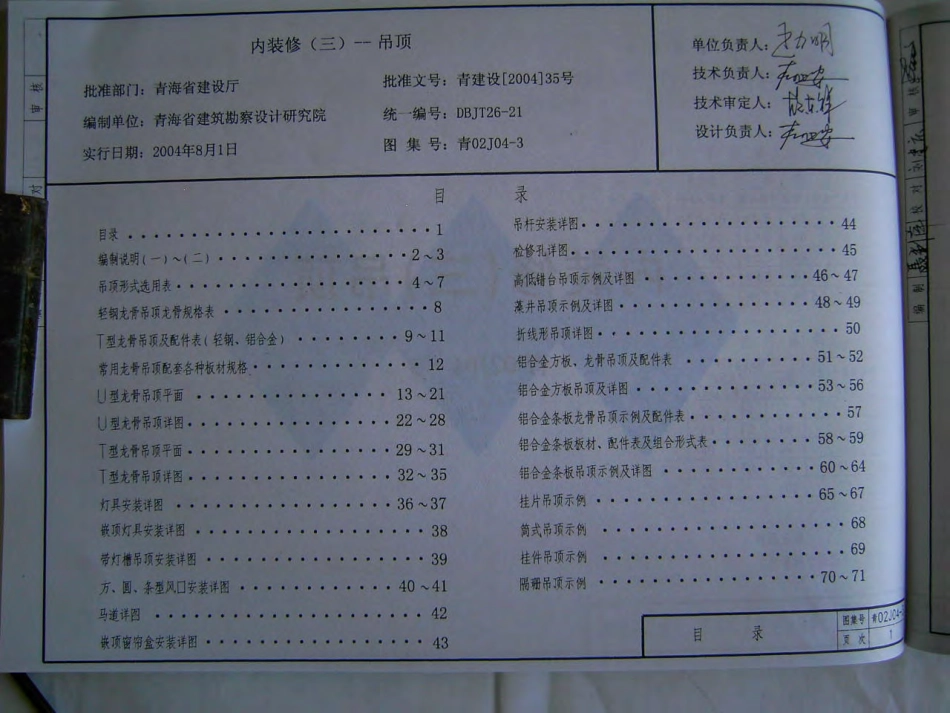 内装修（三）-- 吊顶
批准部门：青海省建设厅
编制单位：青海省建筑勘察设计研究院
实行日期：2004年8月1日
批准文号：青建设[2004]35号
统一编号：DBJT26-21
图 集 号：青02J04-3
单位负责人：
技术负责人：
技术审定人：
设计负责人：
目 录
目录 1
编制说明(一)～(二) 2～3
吊顶形式选用表 4～7
轻钢龙骨吊顶龙骨规格表 8
T型龙骨吊顶及配件表(轻钢、铝合金) 9～11
常用龙骨吊顶配套各种板材规格 12
U型龙骨吊顶平面 13～21
U型龙骨吊顶详图 22～28
T型龙骨吊顶平面 29～31
T型龙骨吊顶详图 32～35
灯具安装详图 36～37
嵌顶灯具安装详图 38
带灯槽吊顶安装详图 39
方、圆、条型风口安装详图 40～41
马道详图 42
嵌顶窗帘盒安装详图 43
吊杆安装详图 44
检修孔详图 45
高低错台吊顶示例及详图 46～47
藻井吊顶示例及详图 48～49
折线形吊顶详图 50
铝合金方板、龙骨吊顶及配件表 51～52
铝合金方板吊顶及详图 53～56
铝合金条板龙骨吊顶示例及配件表 57
铝合金条板板材、配件表及组合形式表 58～59
铝合金条板吊顶示例及详图 60～64
挂片吊顶示例 65～67
筒式吊顶示例 68
挂件吊顶示例 69
隔栅吊顶示例 70～71
目 录
图集号 青02J04-
页 次 1
审 核
对
审 核
校 对
编 制